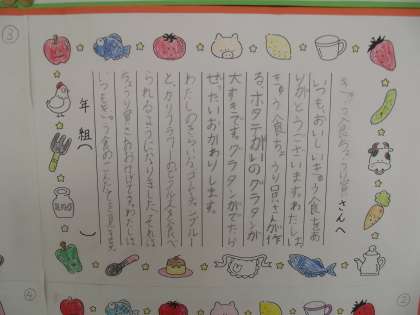 きゅう食ちょうり員さんへ
いつも、おいしいきゅう食をあ
りがとうございます。わたしは、
きゅう食ちょうり員さんが作
る、ホタテがいのグラタンが
大すきです。グラタンがでたら
ぜったいおかわりします。
わたしのきらいなゴーヤ
と、カリフラワーの
られるようになりました。それは
ちょうり員さんのおかげです。わたしは
いつもきゅう食の
年 組( )
③
④
②